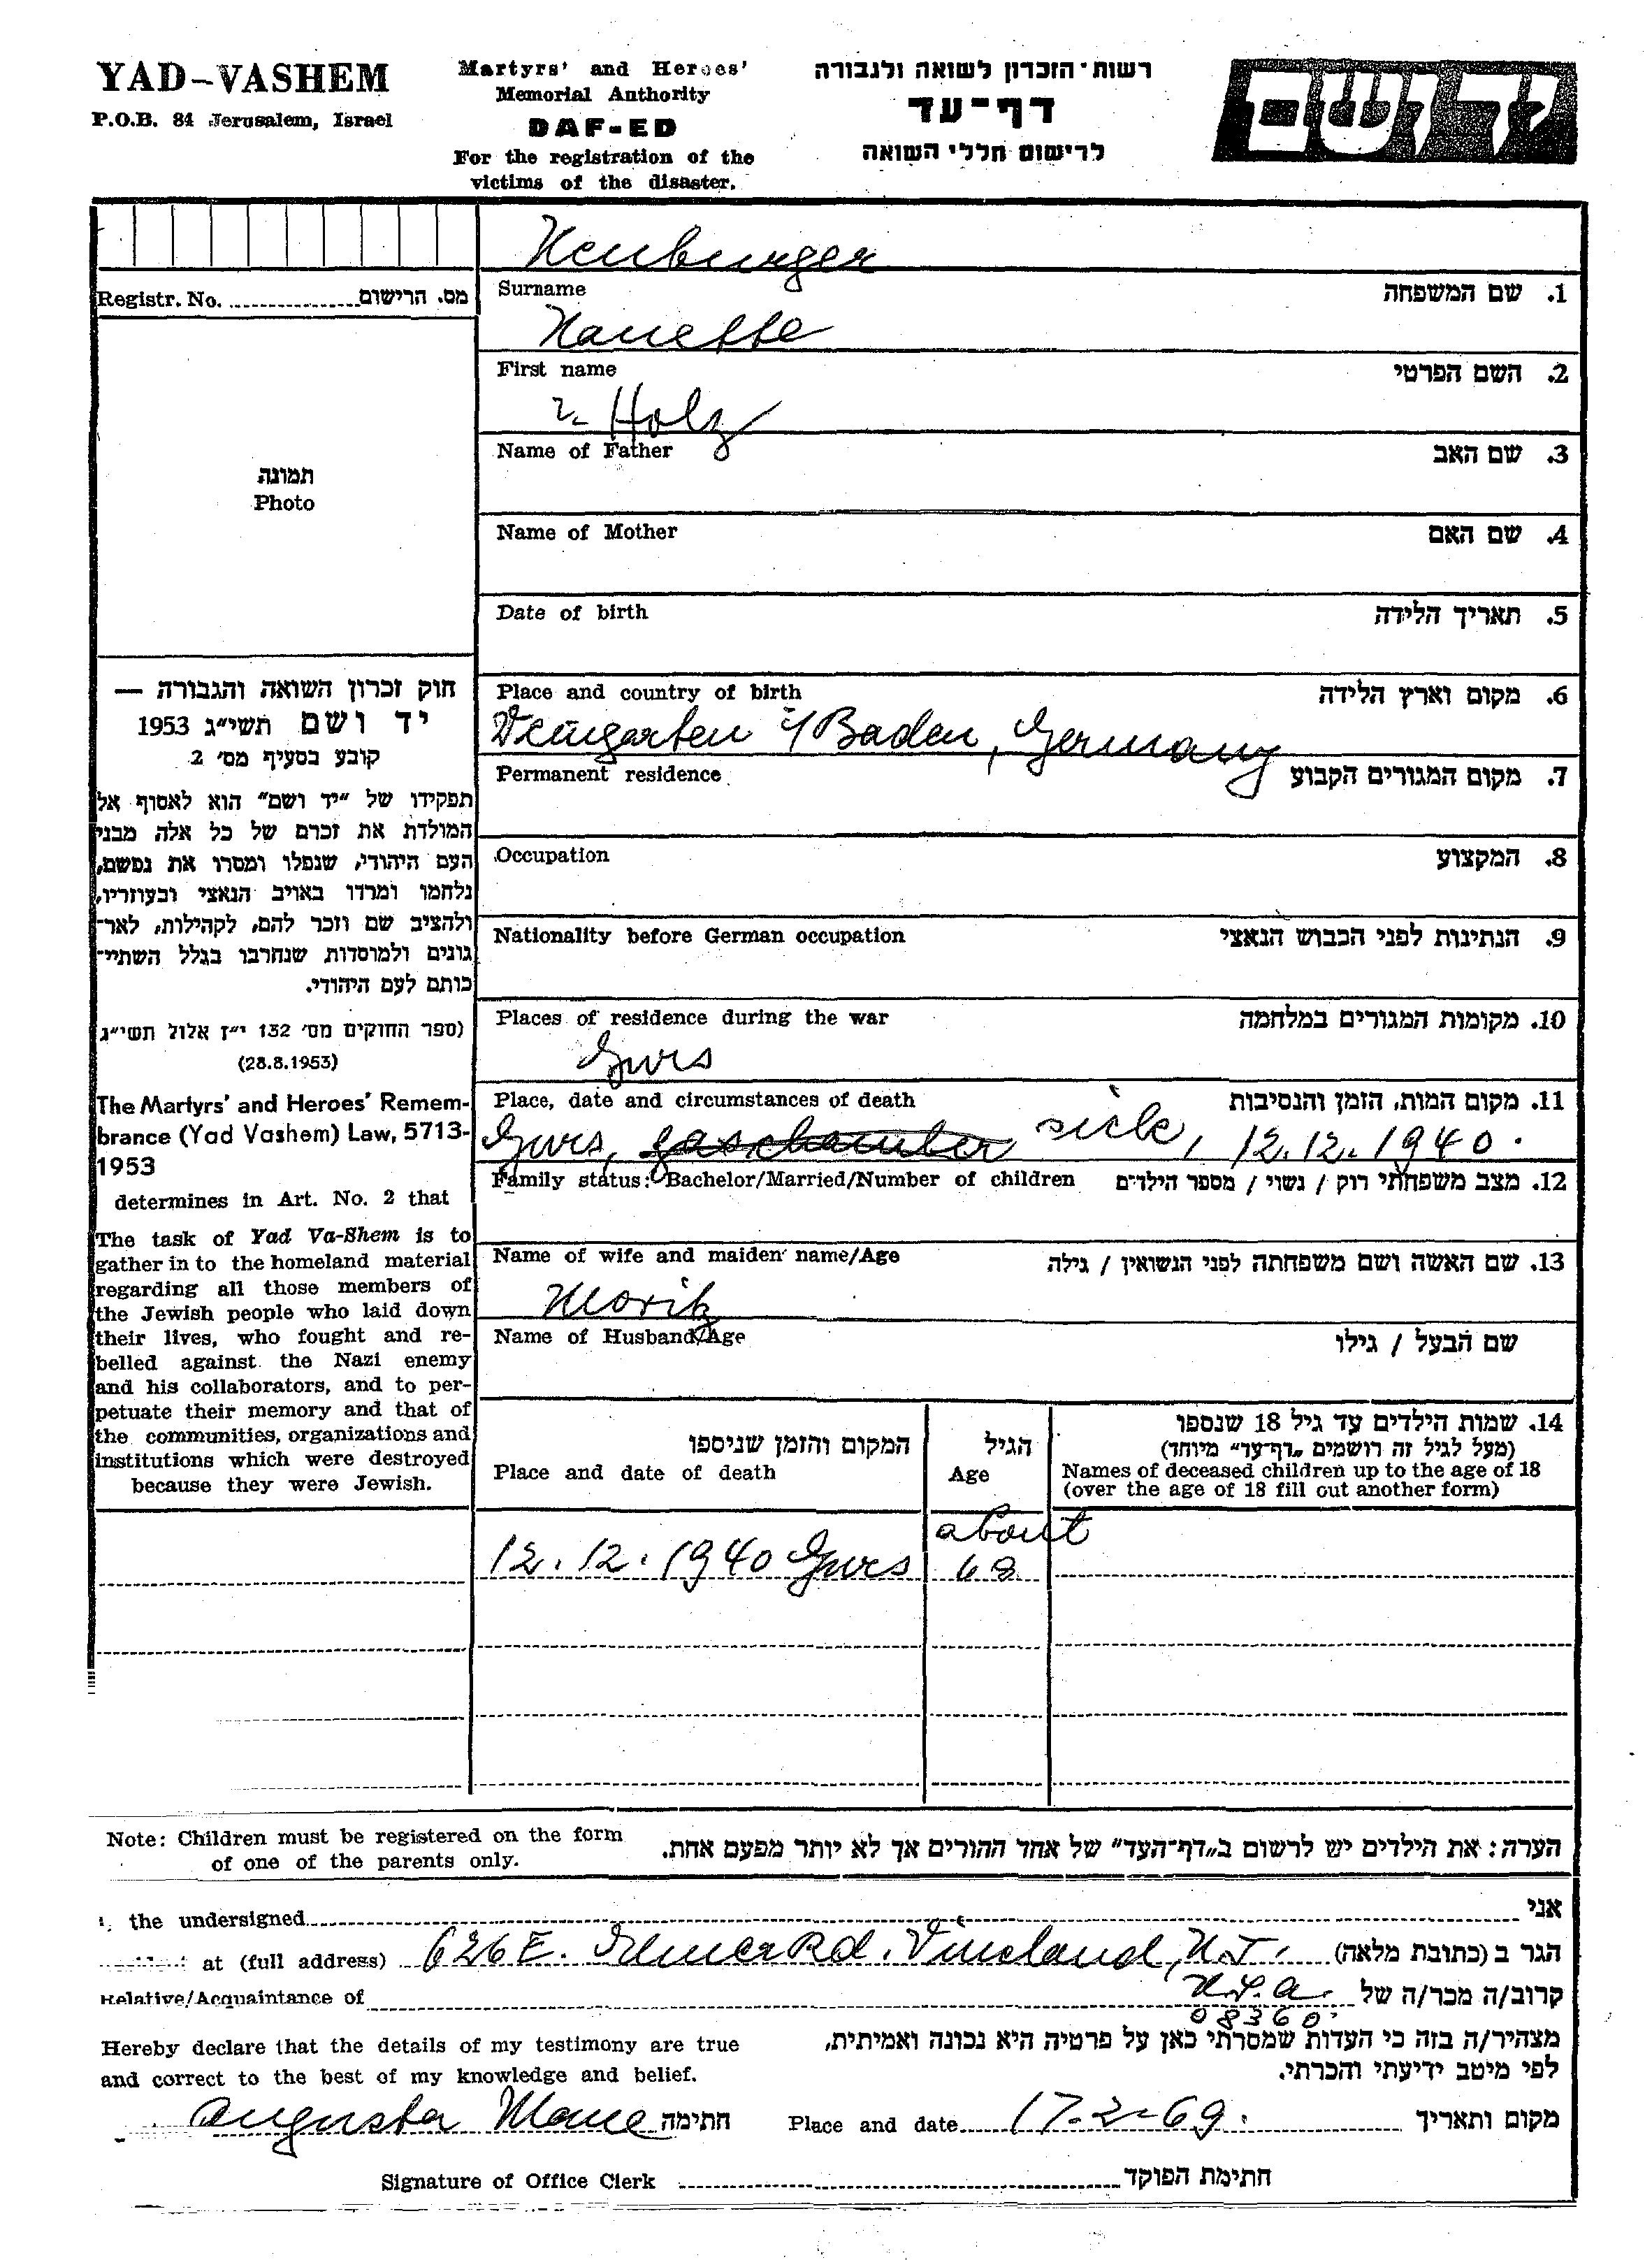 YAD-VASHEM
P.O.B. 84 Jerusalem, Israel
Martyrs' and Heroes'
Memorial Authority
DAF-ED
For the registration of the
victims of the disaster.
רשות-הזכרון לשואה ולגבורה
דף-עד
לרישום חללי השואה
יד ושם
Neuburger
Registr. No. מס. הרישום
Surname 1. שם המשפחה
Nanette
First name 2. השם הפרטי
Holz
Name of Father 3. שם האב
תמונה
Photo
Name of Mother 4. שם האם
Date of birth 5. תאריך הלידה
Place and country of birth 6. מקום וארץ הלידה
Weingarten i/Baden, Germany
Permanent residence 7. מקום המגורים הקבוע
Occupation 8. המקצוע
Nationality before German occupation 9. הנתינות לפני הכבוש הנאצי
Places of residence during the war 10. מקומות המגורים במלחמה
Gurs
Place, date and circumstances of death 11. מקום המות, הזמן והנסיבות
Gurs, gaschamber sick, 12.12.1940.
Family status: Bachelor/Married/Number of children 12. מצב משפחתי רוק / נשוי / מספר הילדים
Name of wife and maiden name/Age 13. שם האשה ושם משפחתה לפני הנשואין / גילה
Moritz
Name of Husband/Age שם הבעל / גילו
חוק זכרון השואה והגבורה —
יד ושם תשי״ג 1953
קובע בסעיף מס׳ 2
תפקידו של ״יד ושם״ הוא לאסוף אל
המולדת את זכרם של כל אלה מבני
העם היהודי, שנפלו ומסרו את נפשם,
נלחמו ומרדו באויב הנאצי ובעוזריו,
ולהציב שם וזכר להם, לקהילות, לאר־
גונים ולמוסדות שנחרבו בגלל השתיי־
כותם לעם היהודי.
(ספר החוקים מס׳ 132 י״ז אלול תשי״ג
(28.8.1953)
The Martyrs' and Heroes' Remem-
brance (Yad Vashem) Law, 5713-
1953
determines in Art. No. 2 that
The task of Yad Va-Shem is to
gather in to the homeland material
regarding all those members of
the Jewish people who laid down
their lives, who fought and re-
belled against the Nazi enemy
and his collaborators, and to per-
petuate their memory and that of
the communities, organizations and
institutions which were destroyed
because they were Jewish.
המקום והזמן שניספו
Place and date of death
הגיל
Age
14. שמות הילדים עד גיל 18 שנספו
(מעל לגיל זה רושמים „דף־עד״ מיוחד)
Names of deceased children up to the age of 18
(over the age of 18 fill out another form)
about
12.12.1940 Gurs 68
Note: Children must be registered on the form
of one of the parents only.
הערה: את הילדים יש לרשום ב„דף־העד״ של אחד ההורים אך לא יותר מפעם אחת.
the undersigned אני
at (full address) 626 E. Elmer Rd. Vineland, N.J. הגר ב (כתובת מלאה)
Relative/Acquaintance of U.S.A. קרוב/ה מכר/ה של
08360
Hereby declare that the details of my testimony are true
and correct to the best of my knowledge and belief.
מצהיר/ה בזה כי העדות שמסרתי כאן על פרטיה היא נכונה ואמיתית,
לפי מיטב ידיעתי והכרתי.
Augusta חתימה Place and date 17-2-69. מקום ותאריך
Signature of Office Clerk חתימת הפוקד